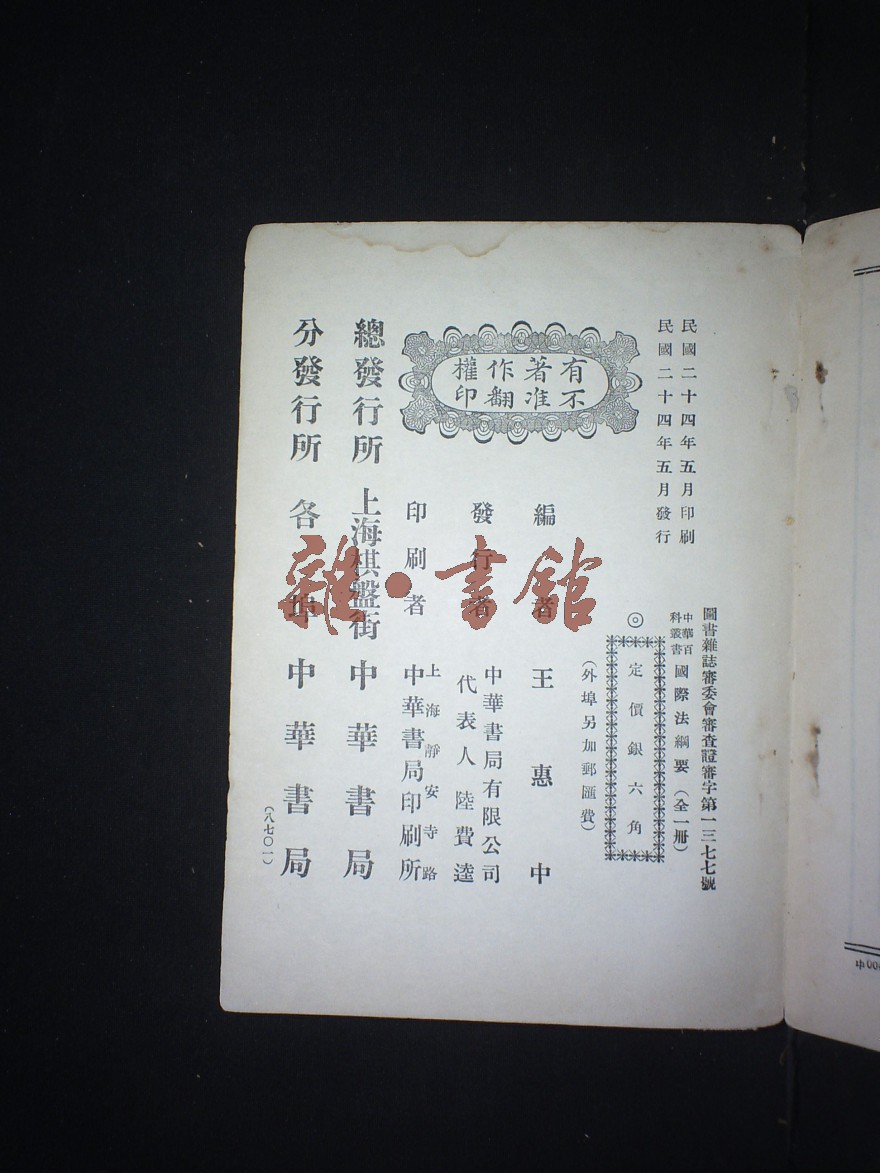 民國二十四年五月印刷
民國二十四年五月發行
圖書雜誌審委會審查證審字第一三七七號
中華百科叢書
國際法綱要（全一冊）
◎定價銀六角
（外埠另加郵匯費）
有著作權
不准翻印
編者 王惠中
發行者 中華書局有限公司
代表人 陸費逵
印刷者 上海靜安寺路
中華書局印刷所
總發行所 上海棋盤街 中華書局
分發行所 各埠 中華書局
（八七〇一）
雜·書館
中00